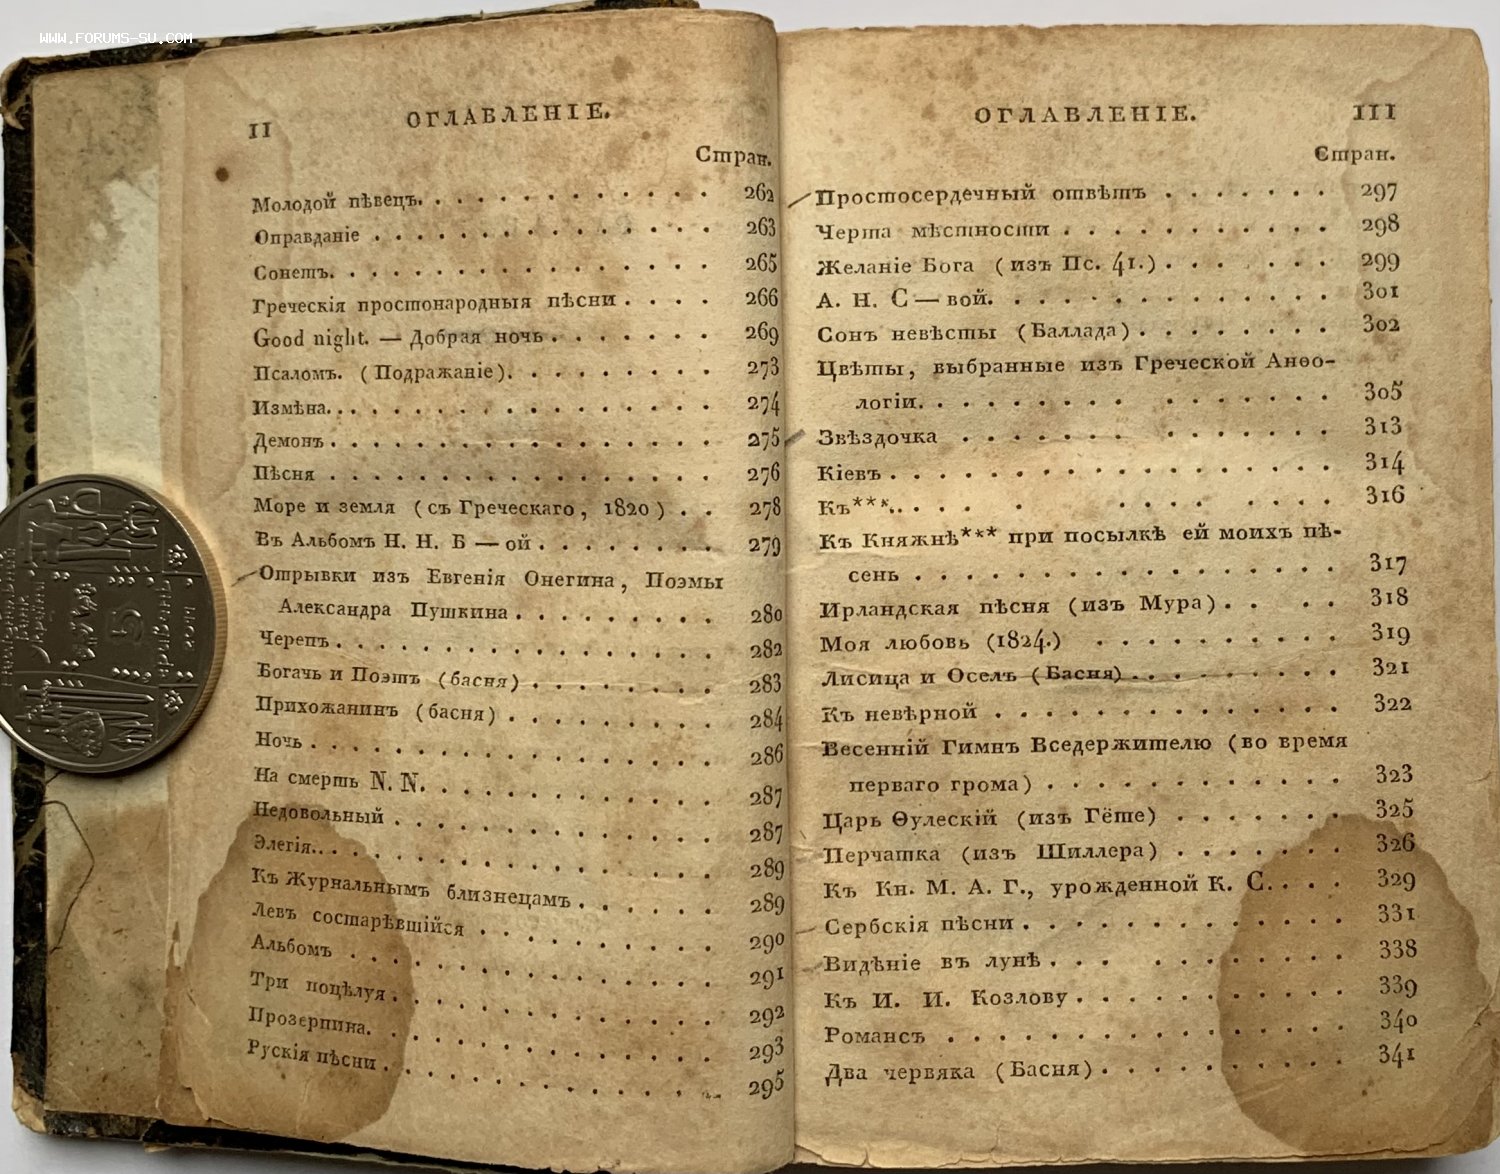 WWW.FORUMS-SU.COM
II ОГЛАВЛЕНІЕ.
Стран.
Молодой пѣвецъ. 262
Оправданіе 263
Сонетъ. 265
Греческія простонародныя пѣсни 266
Good night. — Добрая ночь 269
Псаломъ. (Подражаніе). 273
Измѣна. 274
Демонъ 275
Пѣсня 276
Море и земля (съ Греческаго, 1820) 278
Въ Альбомъ Н. Н. Б — ой 279
Отрывки изъ Евгенія Онегина, Поэмы
Александра Пушкина 280
Черепъ 282
Богачь и Поэтъ (басня) 283
Прихожанинъ (басня) 284
Ночь 286
На смерть N. N. 287
Недовольный 287
Элегія. 289
Къ Журнальнымъ близнецамъ 289
Левъ состарѣвшійся 290
Альбомъ 291
Три поцѣлуя 292
Прозерпина. 293
Рускія пѣсни 295
ОГЛАВЛЕНІЕ. III
Стран.
Простосердечный отвѣтъ 297
Черта мѣстности 298
Желаніе Бога (изъ Пс. 41.) 299
А. Н. С — вой. 301
Сонъ невѣсты (Баллада) 302
Цвѣты, выбранные изъ Греческой Анѳо-
логіи. 305
Звѣздочка 313
Кіевъ 314
Къ***. 316
Къ Княжнѣ*** при посылкѣ ей моихъ пѣ-
сень 317
Ирландская пѣсня (изъ Мура) 318
Моя любовь (1824.) 319
Лисица и Оселъ (Басня) 321
Къ невѣрной 322
Весенній Гимнъ Вседержителю (во время
перваго грома) 323
Царь Ѳулескій (изъ Гёте) 325
Перчатка (изъ Шиллера) 326
Къ Кн. М. А. Г., урожденной К. С. 329
Сербскія пѣсни 331
Видѣніе въ лунѣ 338
Къ И. И. Козлову 339
Романсъ 340
Два червяка (Басня) 341